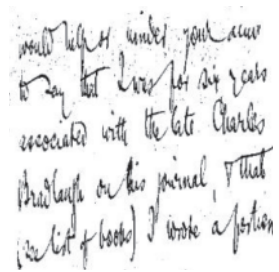 would help or hinder your
to say that I was for six years
associated with the late Charles
Bradlaugh on his journal, & that
(see list of books) I wrote a portion